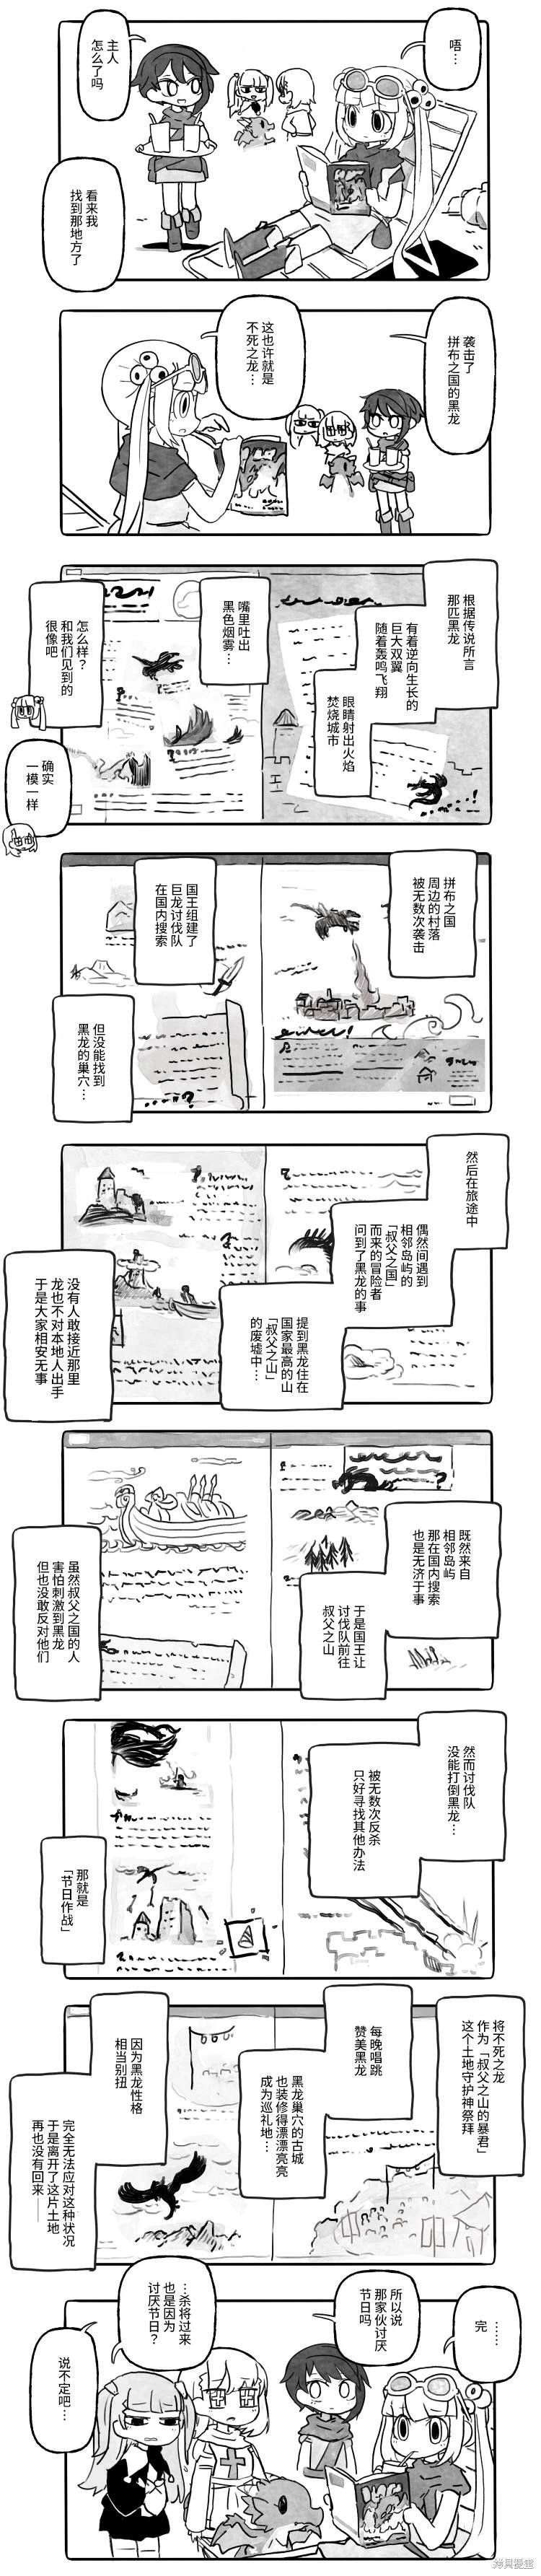 唔…
主人
怎么了吗
看来我
找到那地方了
袭击了
拼布之国的黑龙
这也许就是
不死之龙…
根据传说所言
那匹黑龙
有着逆向生长的
巨大双翼
随着轰鸣飞翔
眼睛射出火焰
焚烧城市
嘴里吐出
黑色烟雾…
怎么样？
和我们见到的
很像吧
确实
一模一样
拼布之国
周边的村落
被无数次袭击
国王组建了
巨龙讨伐队
在国内搜索
但没能找到
黑龙的巢穴…
然后在旅途中
偶然间遇到
相邻岛屿的
「叔父之国」
而来的冒险者
问到了黑龙的事
提到黑龙住在
国家最高的山
「叔父之山」
的废墟中…
没有人敢接近那里
龙也不对本地人出手
于是大家相安无事
既然来自
相邻岛屿
那在国内搜索
也是无济于事
于是国王让
讨伐队前往
叔父之山
虽然叔父之国的人
害怕刺激到黑龙
但也没敢反对他们
然而讨伐队
没能打倒黑龙…
被无数次反杀
只好寻找其他办法
那就是
「节日作战」
将不死之龙
作为「叔父之山的暴君」
这个土地守护神祭拜
每晚唱跳
赞美黑龙
黑龙巢穴的古城
也装修得漂漂亮亮
成为巡礼地…
因为黑龙性格
相当别扭
完全无法应对这种状况
于是离开了这片土地
再也没有回来——
……
完
所以说
那家伙讨厌
节日吗
…杀将过来
也是因为
讨厌节日？
说不定吧…
拷贝漫画